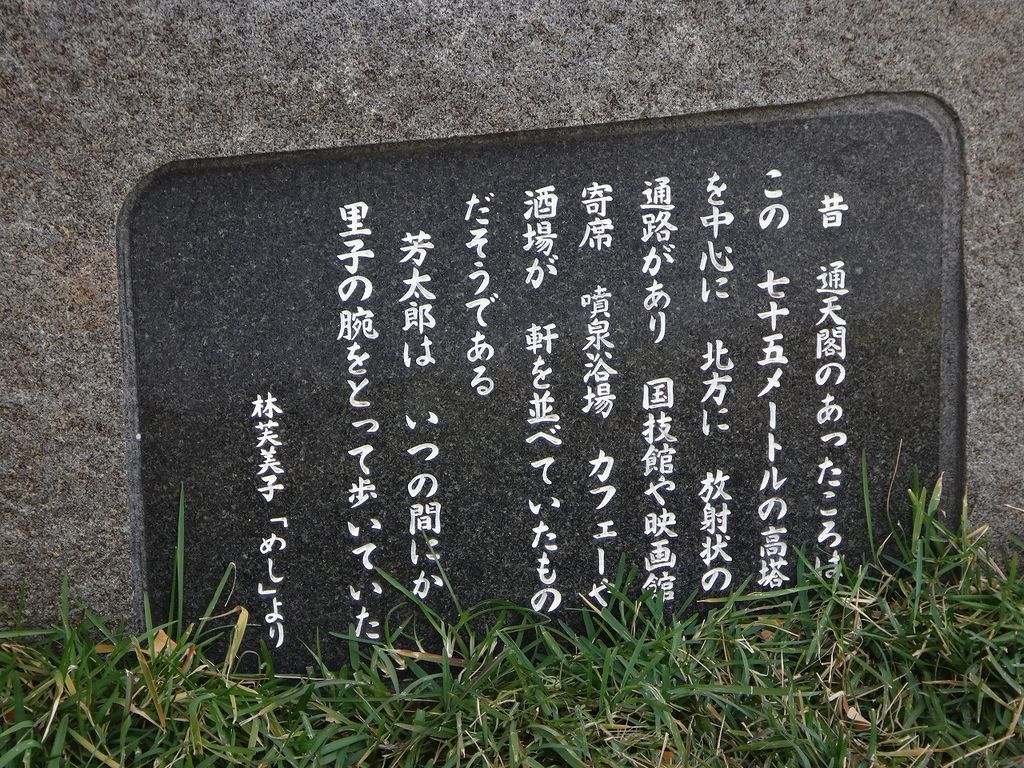 昔　通天閣のあったころは
この　七十五メートルの高塔
を中心に　北方に　放射状の
通路があり　国技館や映画館
寄席　噴泉浴場　カフェーや
酒場が　軒を並べていたもの
だそうである
芳太郎は　いつの間にか
里子の腕をとって歩いていた
林芙美子「めし」より